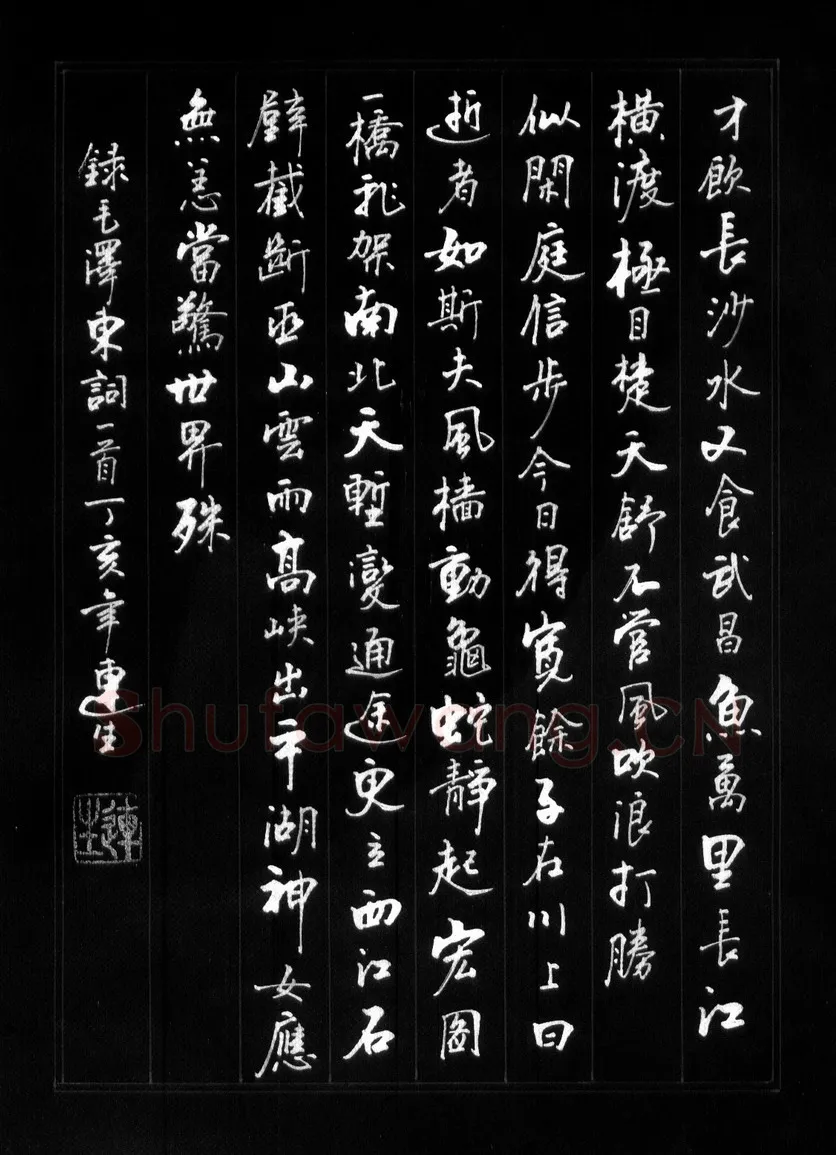 才飲長沙水又食武昌魚萬里長江
橫渡極目楚天舒不管風吹浪打勝
似閑庭信步今日得寬餘子在川上曰
逝者如斯夫風檣動龜蛇靜起宏圖
一橋飛架南北天塹變通途更立西江石
壁截斷巫山雲雨高峽出平湖神女應
無恙當驚世界殊
録毛澤東詞一首丁亥年連生
連生
Shufawang.CN